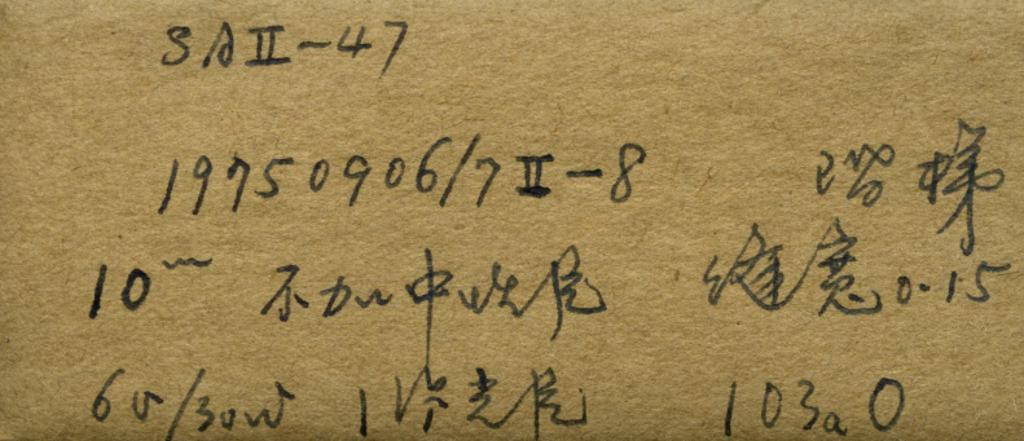 SAII-47
19750906/7 II-8 阶梯
10m 不加中性片 缝宽0.15
6v/30w 1 光片 103aO